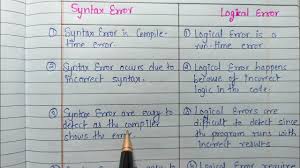 Syntax Error
Logical Error
① Syntax Error is Compile-
time error.
① Logical Error is a
run-time error.
② Syntax Error occurs due to
incorrect syntax.
② Logical Error happens
because of incorrect
logic in the code.
③ Syntax Error are easy to
detect as the compiler
shows the error
③ Logical Errors are
difficult to detect since
the program runs with
incorrect results